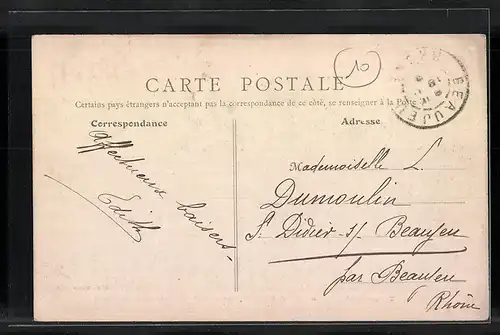 10
CARTE POSTALE
Certains pays étrangers n'acceptant pas la correspondance de ce côté, se renseigner à la Poste
BEAUJEU
Correspondance
Adresse
affectueux baisers
Edith
Mademoiselle L.
Dumoulin
St Didier s/ Beaujeu
par Beaujeu
Rhône